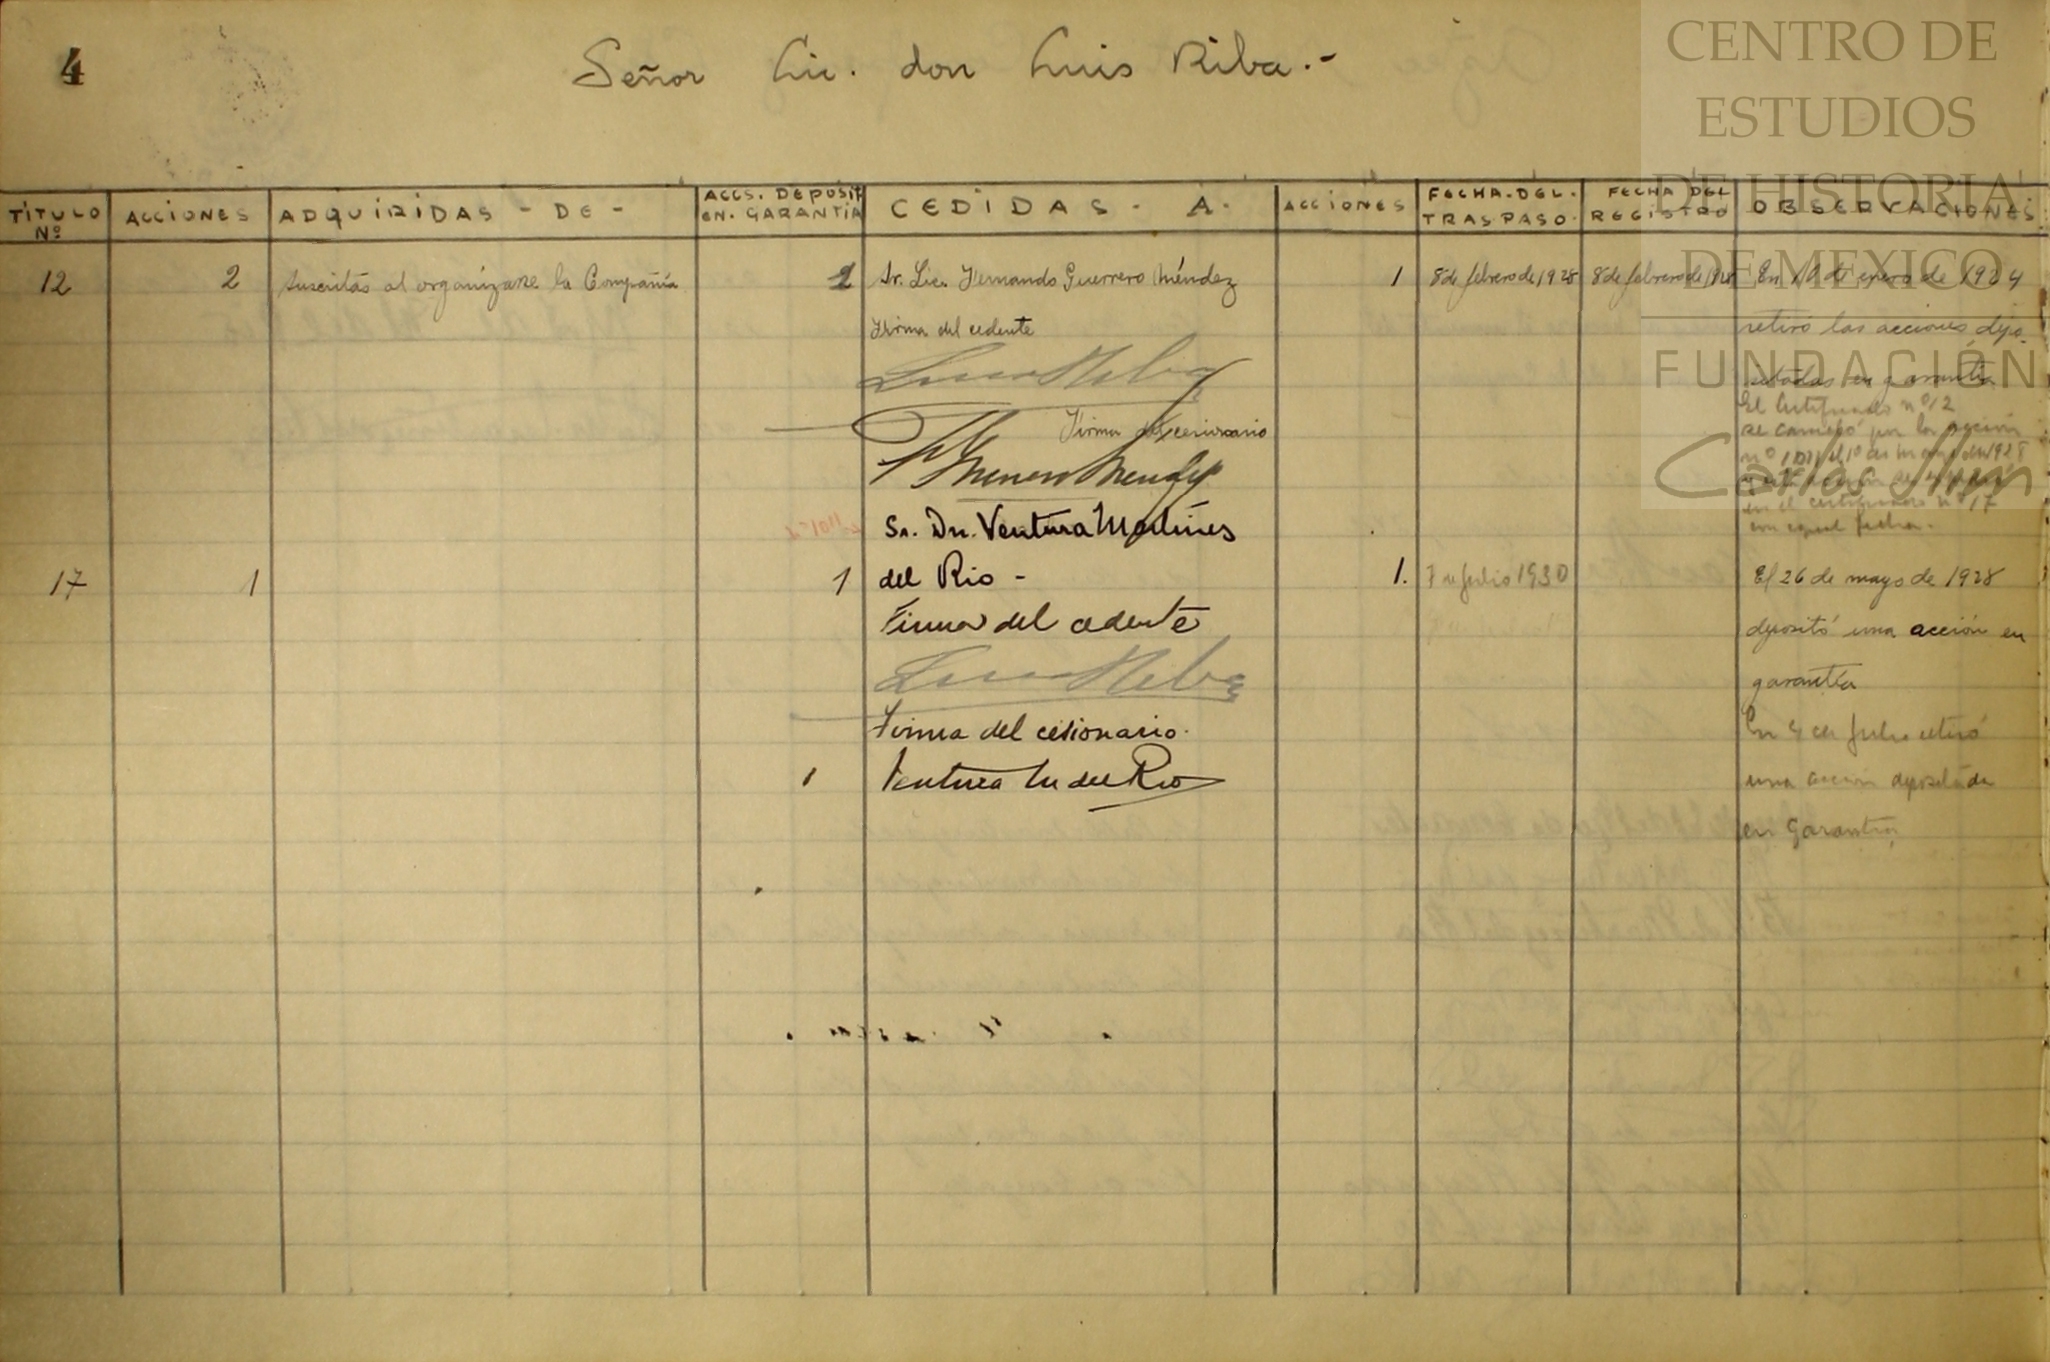 4
Señor Lic. don Luis Riba.-
TÍTULO Nº
ACCIONES
ADQUIRIDAS - DE -
ACCS. DEPOSIT EN. GARANTÍA
CEDIDAS. A.
ACCIONES
FECHA.DEL. TRASPASO.
FECHA DEL REGISTRO
OBSERVACIONES.
12 2 Suscritas al organizarse la Compañía 2 Sr. Lic. Fernando Guerrero Méndez 1 8 de febrero de 1928 8 de febrero de 1928 En 10 de enero de 1924
Firma del cedente
retiró las acciones depo-
sitadas en garantía
Luis Riba
El Certificado nº 12
Firma del cesionario
se canjeó por la acción
en el certificado nº 17
con igual fecha.
Sr. Dn. Ventura Martines
17 1 1 del Rio - 1. 7 de Julio 1930 El 26 de mayo de 1928
Firma del cedente
depositó una acción en
garantía
Luis Riba
Firma del cesionario.
En 4 de Julio retiró
1 Ventura M del Rio
una acción depositada
en garantía
CENTRO DE
ESTUDIOS
DE HISTORIA
DE MEXICO
FUNDACIÓN
Carlos Slim